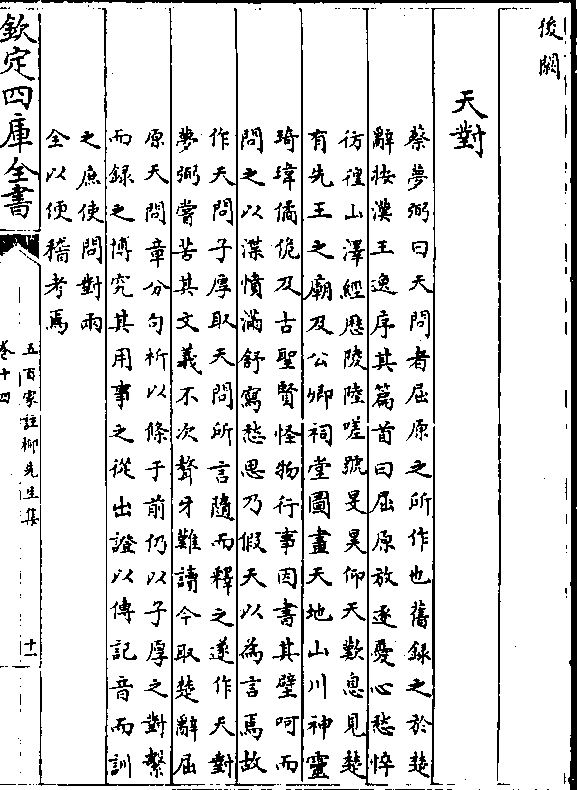 後闕
天對
蔡夢弼曰天問者屈原之所作也舊録之於楚
辭按漢王逸序其篇首曰屈原放逐憂心愁悴
彷徨山澤經歴陵陸嗟號旻昊仰天歎息見楚
有先王之廟及公卿祠堂圖畫天地山川神靈
琦瑋僪佹及古聖賢怪物行事因書其壁呵而
問之以渫憤滿舒寫愁思乃假天以為言焉故
作天問子厚取天問所言隨而釋之遂作天對
夢弼嘗苦其文義不次聱牙難讀今取楚辭屈
原天問章分句析以條于前仍以子厚之對繫
而録之博究其用事之從出證以傳記音而訓
之庶使問對兩
全以便稽考焉
欽定四庫全書
五百家註柳先生集
卷十四
十一